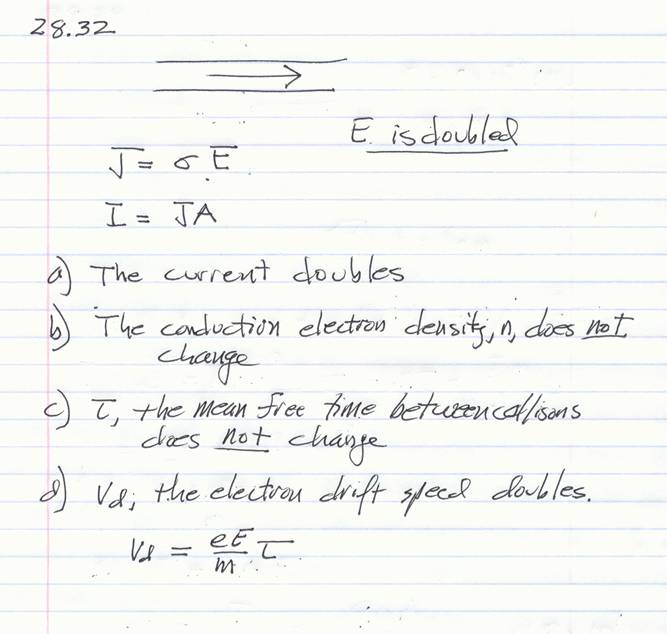 28.32
E is doubled
J = σ E
I = JA
a) The current doubles
b) The conduction electron density, n, does not
change
c) τ, the mean free time between collisons
does not change
d) Vd, the electron drift speed doubles.
Vd = eE/m τ